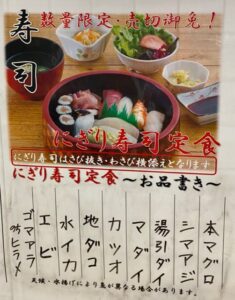 寿司
数量限定・売切御免！
にぎり寿司定食
にぎり寿司はさび抜き・わさび横添えとなります
にぎり寿司定食 ～お品書き～
本マグロ
シマアジ
湯引ダイ
マダイ
カツオ
地ダコ
水イカ
エビ
ゴマアラ
天候・水揚げにより魚が異なる場合があります。